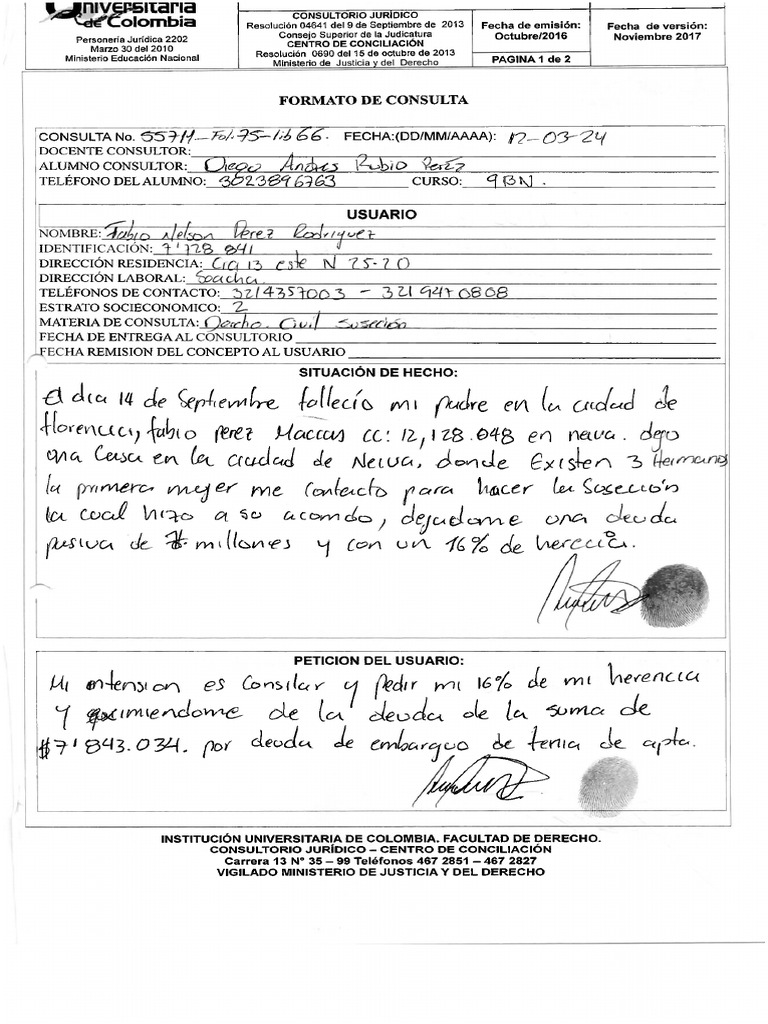 Universitaria
de Colombia
Personería Jurídica 2202
Marzo 30 del 2010
Ministerio Educación Nacional
CONSULTORIO JURÍDICO
Resolución 04641 del 9 de Septiembre de 2013
Consejo Superior de la Judicatura
CENTRO DE CONCILIACIÓN
Resolución 0690 del 15 de octubre de 2013
Ministerio de Justicia y del Derecho
Fecha de emisión:
Octubre/2016
PAGINA 1 de 2
Fecha de versión:
Noviembre 2017
FORMATO DE CONSULTA
CONSULTA No. 55711-Fol.75-lib 66. FECHA:(DD/MM/AAAA): 12-03-24
DOCENTE CONSULTOR:
ALUMNO CONSULTOR: Diego Andres Rubio Perez
TELÉFONO DEL ALUMNO: 3023896763 CURSO: 9BN.
USUARIO
NOMBRE: Fabio Nelson Perez Rodriguez
IDENTIFICACIÓN: 7'728 841
DIRECCIÓN RESIDENCIA: Cra 13 este N 25-20
DIRECCIÓN LABORAL: Soacha
TELÉFONOS DE CONTACTO: 3214357003 - 3219470808
ESTRATO SOCIECONOMICO: 2
MATERIA DE CONSULTA: Dercho Civil Susecion
FECHA DE ENTREGA AL CONSULTORIO
FECHA REMISION DEL CONCEPTO AL USUARIO
SITUACIÓN DE HECHO:
El dia 14 de Septiembre fallecio mi padre en la ciudad de
florencia, fabio perez Maccias cc: 12,128.048 en neiva. dejo
una Casa en la ciudad de Neiva, donde Existen 3 Hermanos
la primera mujer me contacto para hacer la Soseción
la cual hizo a su acomodo, dejadome una deuda
pasiva de 7. millones y con un 16% de herecia.
PETICION DEL USUARIO:
Mi intension es Consilar y pedir mi 16% de mi herencia
y eximiendome de la deuda de la suma de
$7'843.034. por deuda de embarguo de tenia de apta.
INSTITUCIÓN UNIVERSITARIA DE COLOMBIA. FACULTAD DE DERECHO.
CONSULTORIO JURÍDICO – CENTRO DE CONCILIACIÓN
Carrera 13 N° 35 – 99 Teléfonos 467 2851 – 467 2827
VIGILADO MINISTERIO DE JUSTICIA Y DEL DERECHO